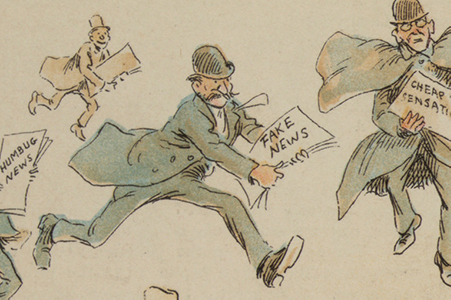 HUMBUG
NEWS
FAKE
NEWS
CHEAP
SENSATI